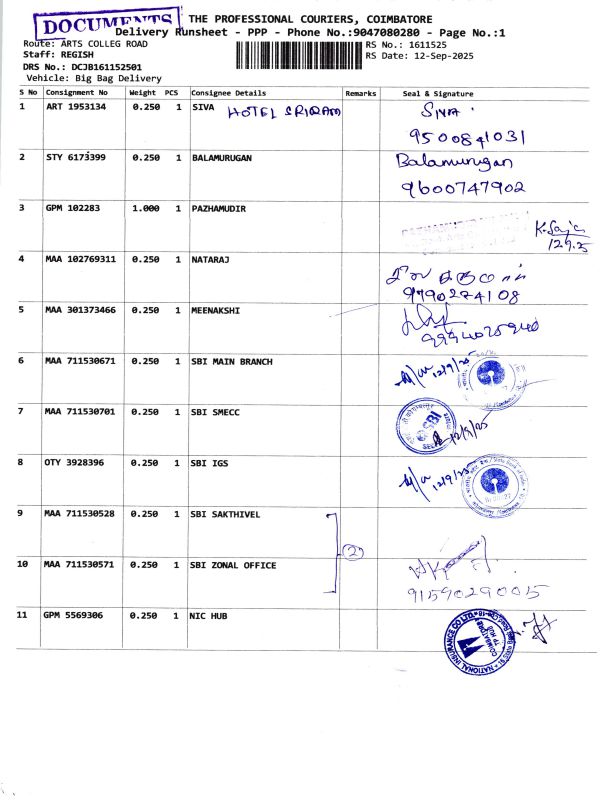 DOCUMENTS
THE PROFESSIONAL COURIERS, COIMBATORE
Delivery Runsheet - PPP - Phone No.:9047080280 - Page No.:1
Route: ARTS COLLEG ROAD
RS No.: 1611525
Staff: REGISH
RS Date: 12-Sep-2025
DRS No.: DCJB161152501
Vehicle: Big Bag Delivery
S No Consignment No Weight PCS Consignee Details Remarks Seal & Signature
1 ART 1953134 0.250 1 SIVA HOTEL SRIRAM Siva
9500841031
2 STY 6173399 0.250 1 BALAMURUGAN Balamurugan
9600747902
3 GPM 102283 1.000 1 PAZHAMUDIR
12.9.25
4 MAA 102769311 0.250 1 NATARAJ
9790274108
5 MAA 301373466 0.250 1 MEENAKSHI
6 MAA 711530671 0.250 1 SBI MAIN BRANCH 12/9/25
7 MAA 711530701 0.250 1 SBI SMECC SBI 12/9/25
8 OTY 3928396 0.250 1 SBI IGS 12/9/25
9 MAA 711530528 0.250 1 SBI SAKTHIVEL
(2)
10 MAA 711530571 0.250 1 SBI ZONAL OFFICE
91590290015
11 GPM 5569306 0.250 1 NIC HUB NATIONAL INSURANCE CO LTD.
COIMBATORE
TP HUB